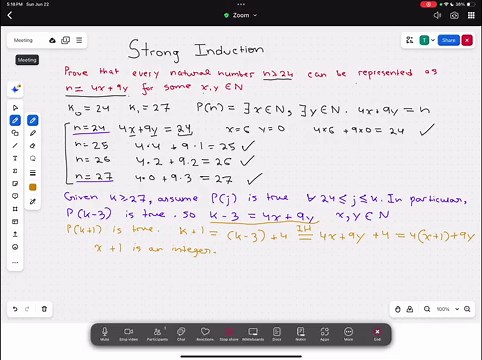 5:18 PM Sun Jun 22
Zoom
36%
Meeting
Share
Meeting
Strong Induction
Prove that every natural number n≥24 can be represented as
n = 4x+9y for some x,y ∈ N
k₀ = 24 k₁ = 27 P(n) = ∃x∈N, ∃y∈N. 4x+9y = n
n=24 4x+9y = 24, x=6 y=0 4×6 + 9×0 = 24 ✓
n = 25 4·4 + 9·1 = 25 ✓
n = 26 4·2 + 9·2 = 26 ✓
n = 27 4·0 + 9·3 = 27 ✓
Given k≥27, assume P(j) is true ∀ 24≤j≤k. In particular,
P(k-3) is true. so k-3 = 4x+9y x,y ∈ N
P(k+1) is true. k+1 = (k-3)+4 IH= 4x+9y+4 = 4(x+1)+9y
x+1 is an integer.
100%
Mute
Stop video
Participants
Chat
Reactions
Stop share
Whiteboards
Docs
Notes
Apps
More
End